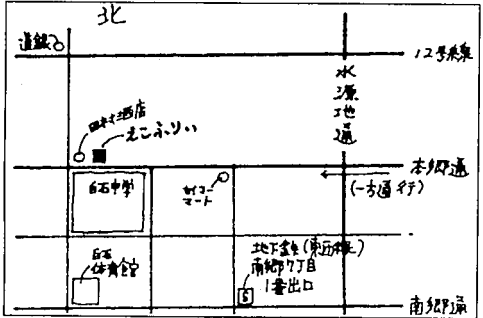 北
道銀
12号線
水
源
地
通
田村酒店
えこふりぃ
本郷通
(一方通行)
白石中学
セイコー
マート
白石
体育館
地下鉄(東西線)
南郷7丁目
1番出口
南郷通